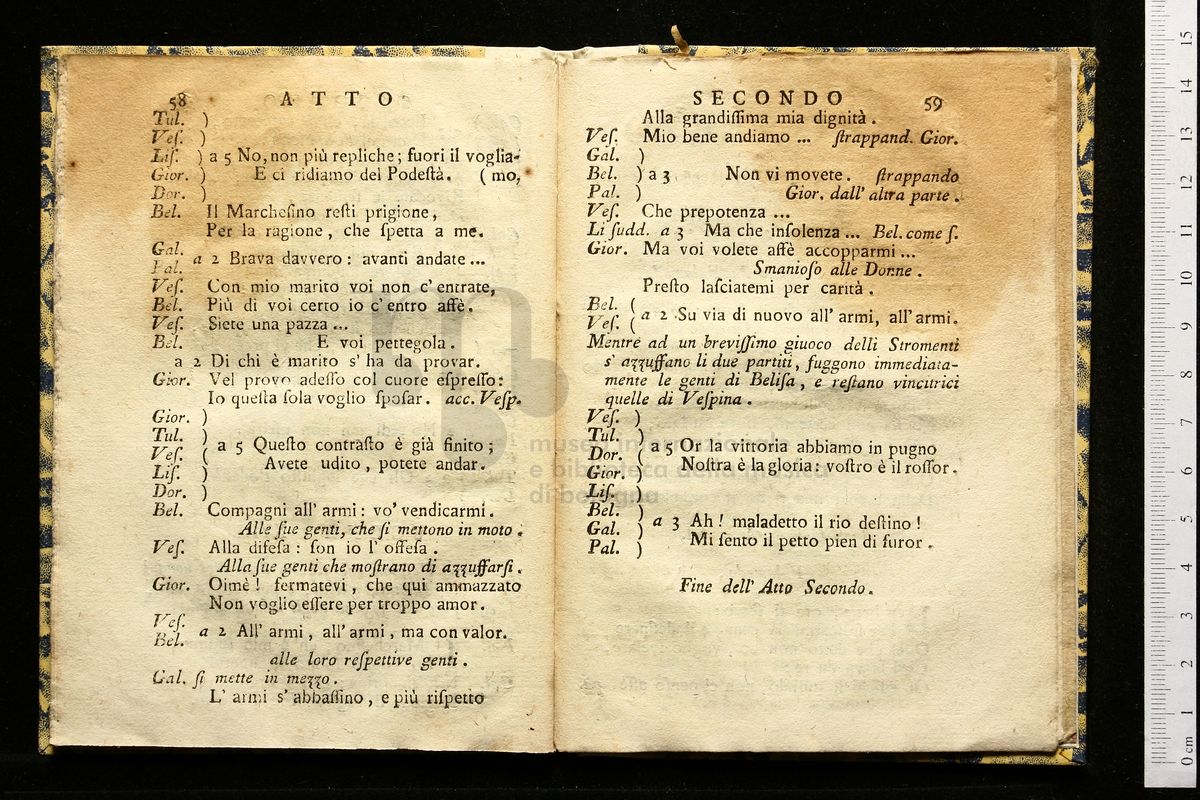 58 ATTO
Tul. )
Veſ. )
Liſ. ) a 5 No, non più repliche; fuori il voglia-
Gior. ) E ci ridiamo del Podeſtà. ( mo,
Dor. )
Bel. Il Marcheſino reſti prigione,
Per la ragione, che ſpetta a me.
Gal.
Pal. a 2 Brava davvero: avanti andate ...
Veſ. Con mio marito voi non c' entrate,
Bel. Più di voi certo io c' entro affè.
Veſ. Siete una pazza ...
Bel. E voi pettegola.
a 2 Di chi è marito s' ha da provar.
Gior. Vel provo adeſſo col cuore eſpreſſo:
Io queſta ſola voglio ſpoſar. acc. Veſp.
Gior. )
Tul. )
Veſ. ( a 5 Queſto contraſto è già finito;
Liſ. ) Avete udito, potete andar.
Dor. )
Bel. Compagni all' armi: vo' vendicarmi.
Alle ſue genti, che ſi mettono in moto.
Veſ. Alla difeſa: ſon io l' offeſa.
Alla ſue genti che moſtrano di azzuffarſi.
Gior. Oimè! fermatevi, che qui ammazzato
Non voglio eſſere per troppo amor.
Veſ.
Bel. a 2 All' armi, all' armi, ma con valor.
alle loro reſpettive genti.
Gal. ſi mette in mezzo.
L' armi s' abbaſſino, e più riſpetto
SECONDO 59
Alla grandiſſima mia dignità.
Veſ. Mio bene andiamo ... ſtrappand. Gior.
Gal. )
Bel. ) a 3 Non vi movete. ſtrappando
Pal. ) Gior. dall' altra parte.
Veſ. Che prepotenza ...
Li ſudd. a 3 Ma che inſolenza ... Bel. come ſ.
Gior. Ma voi volete affè accopparmi ...
Smanioſo alle Donne.
Preſto laſciatemi per carità.
Bel. (
Veſ. ( a 2 Su via di nuovo all' armi, all' armi.
Mentre ad un breviſſimo giuoco delli Stromenti
s' azzuffano li due partiti, fuggono immediata-
mente le genti di Beliſa, e reſtano vincitrici
quelle di Veſpina.
Veſ. )
Tul. )
Dor. ( a 5 Or la vittoria abbiamo in pugno
Gior. ) Noſtra è la gloria: voſtro è il roſſor.
Liſ. )
Bel. )
Gal. ) a 3 Ah! maladetto il rio deſtino!
Pal. ) Mi ſento il petto pien di furor.
Fine dell' Atto Secondo.
museo internazionale
e biblioteca della musica
di bologna
0 cm 1 2 3 4 5 6 7 8 9 10 11 12 13 14 15